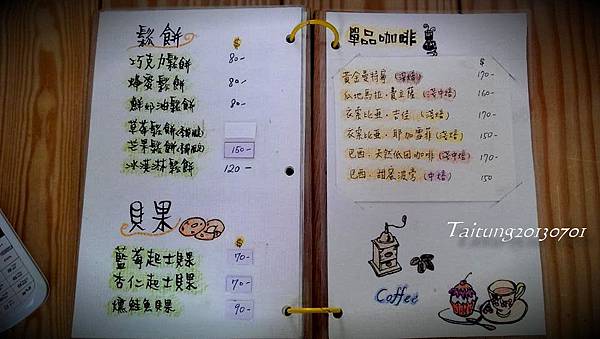 鬆餅 $
巧克力鬆餅 80-
蜂蜜鬆餅 80-
鮮奶油鬆餅 80-
草莓鬆餅
芒果鬆餅 150-
冰淇淋鬆餅 120-
貝果
$
藍莓起士貝果 70-
杏仁起士貝果 70-
燻鮭魚貝果 90-
單品咖啡
$
黃金曼特寧 170-
瓜地馬拉.貴立薩 (淺中焙) 160-
衣索比亞.吉佳 (淺焙) 170-
衣索比亞.耶加雪菲 (淺焙) 150-
巴西.天然低因咖啡 (淺中焙) 170-
巴西.甜展波雪 (中焙) 150
Coffee
Taitung20130701